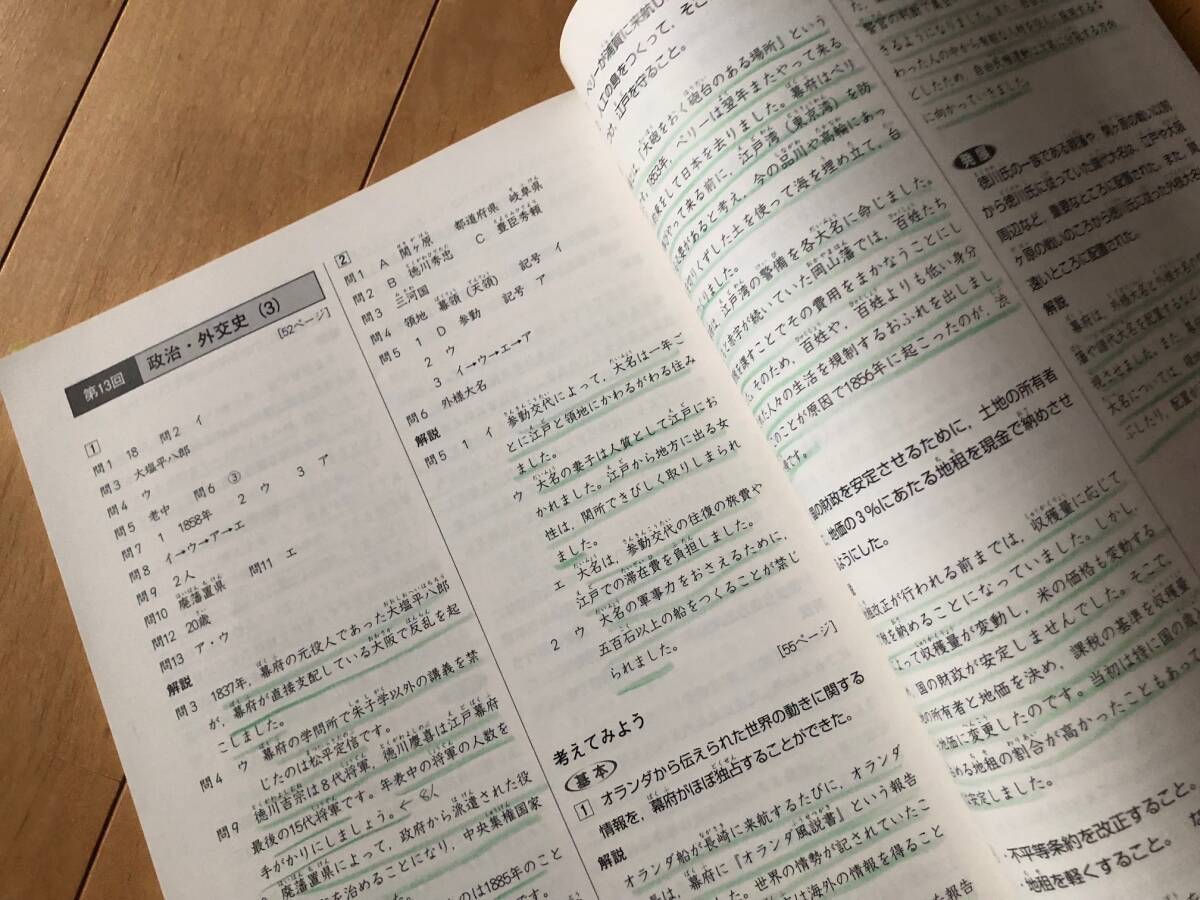 第13回 政治・外交史（3）
[52ページ]
1
問1 18 問2 イ
問3 大塩平八郎
問4 ウ
問5 老中 問6 ③
問7 1 1858年 2 ウ 3 ア
問8 イ→ウ→ア→エ
問9 2人
問10 廃藩置県 問11 エ
問12 20歳
問13 ア・ウ
解説
問3 1837年，幕府の元役人であった大塩平八郎
が，幕府が直接支配している大阪で反乱を起
こしました。
問4 ウ 幕府の学問所で朱子学以外の講義を禁
じたのは松平定信です。
問9 徳川吉宗は8代将軍，徳川慶喜は江戸幕府
最後の15代将軍です。年表中の将軍の人数を
手がかりにしましょう。←8人
廃藩置県によって，政府から派遣された役
を治めることになり，中央集権国家
は1885年のこと
2
問1 A 関ヶ原 都道府県 岐阜県
問2 B 徳川秀忠 C 豊臣秀頼
問3 三河国
問4 領地 幕領（天領） 記号 イ
問5 1 D 参勤 記号 ア
2 ウ
3 イ→ウ→エ→ア
問6 外様大名
解説
問5 1 イ 参勤交代によって，大名は一年ご
とに江戸と領地にかわるがわる住み
ました。
ウ 大名の妻子は人質として江戸にお
かれました。江戸から地方に出る女
性は，関所できびしく取りしまられ
ました。
エ 大名は，参勤交代の往復の旅費や
江戸での滞在費を負担しました。
2 ウ 大名の軍事力をおさえるために，
五百石以上の船をつくることが禁じ
られました。
[55ページ]
考えてみよう
基本
1 オランダから伝えられた世界の動きに関する
情報を，幕府がほぼ独占することができた。
解説
オランダ船が長崎に来航するたびに，オランダ
は，幕府に『オランダ風説書』という報告
た。世界の情勢が記されていたこ
は海外の情報を得ること
た報告
ペリーが浦賀に来航し
人工の島をつくって，そこ
江戸を守ること。
「大砲をおく砲台のある場所」という
1853年，ペリーは翌年またやって来る
束をして日本を去りました。幕府はペリ
やって来る前に，江戸湾（東京湾）を防
必要があると考え，今の品川や高輪にあっ
切りくずした土を使って海を埋め立て，台
りました。
江戸湾の警備を各大名に命じました。
赤字が続いていた岡山藩では，百姓たち
を課すことでその費用をまかなうことにし
そのため，百姓や，百姓よりも低い身分
た人々の生活を規制するおふれを出しまし
このことが原因で1856年に起こったのが，渋
です。
国の財政を安定させるために，土地の所有者
地価の3％にあたる地租を現金で納めさせ
ようにした。
租改正が行われる前までは，収穫量に応じて
税を納めることになっていました。しかし，
よって収穫量が変動し，米の価格も変動する
国の財政が安定しませんでした。そこで，
の所有者と地価を決め，課税の基準を収穫量
地価に変更したのです。当初は特に国の歳
める地租の割合が高かったこともあって
安定しました。
・不平等条約を改正すること。
・地租を軽くすること。
きるようになりました。また，
わった人の中から有能な人材を
としたため，自由民権運動は
に向かっていきました。
発展
徳川氏の一族である親藩や，関ヶ原の戦い以前
から徳川氏に従っていた譜代大名は，江戸や大阪
周辺など，重要なところに配置された。また，関
ヶ原の戦いのころから徳川氏に従った外様大名
遠いところに配置された。
解説
幕府は，外様大名と
藩や譜代大名を配置するなど
視させました。また，
大名については，
ぶしたり，配置